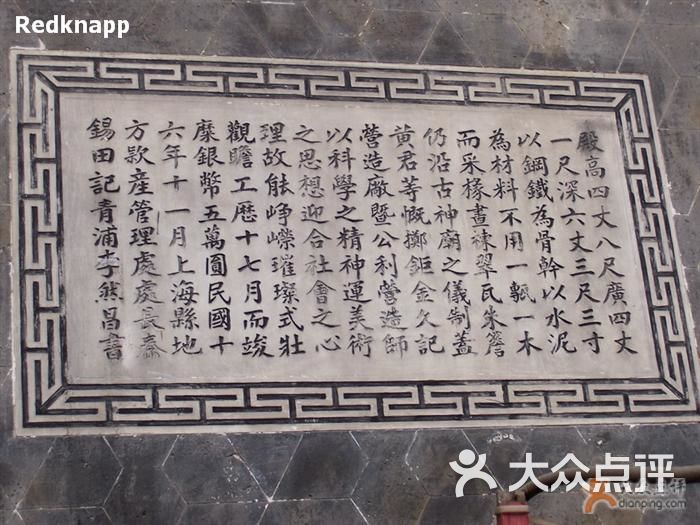 Redknapp
殿高四丈八尺廣四丈
一尺深六丈三尺三寸
以鋼鐵為骨幹以水泥
為材料不用一甎一木
而采椽畫棟翠瓦朱簷
仍沿古神廟之儀制蓋
黃君等慨擲鉅金久記
營造廠暨公利營造師
以科學之精神運美術
之思想迎合社會之心
理故能崢嶸璀璨式壯
觀瞻工歷十七月而竣
糜銀幣五萬圓民國十
六年十一月上海縣地
方款產管理處處長秦
錫田記青浦李然昌書
大众点评
dianping.com